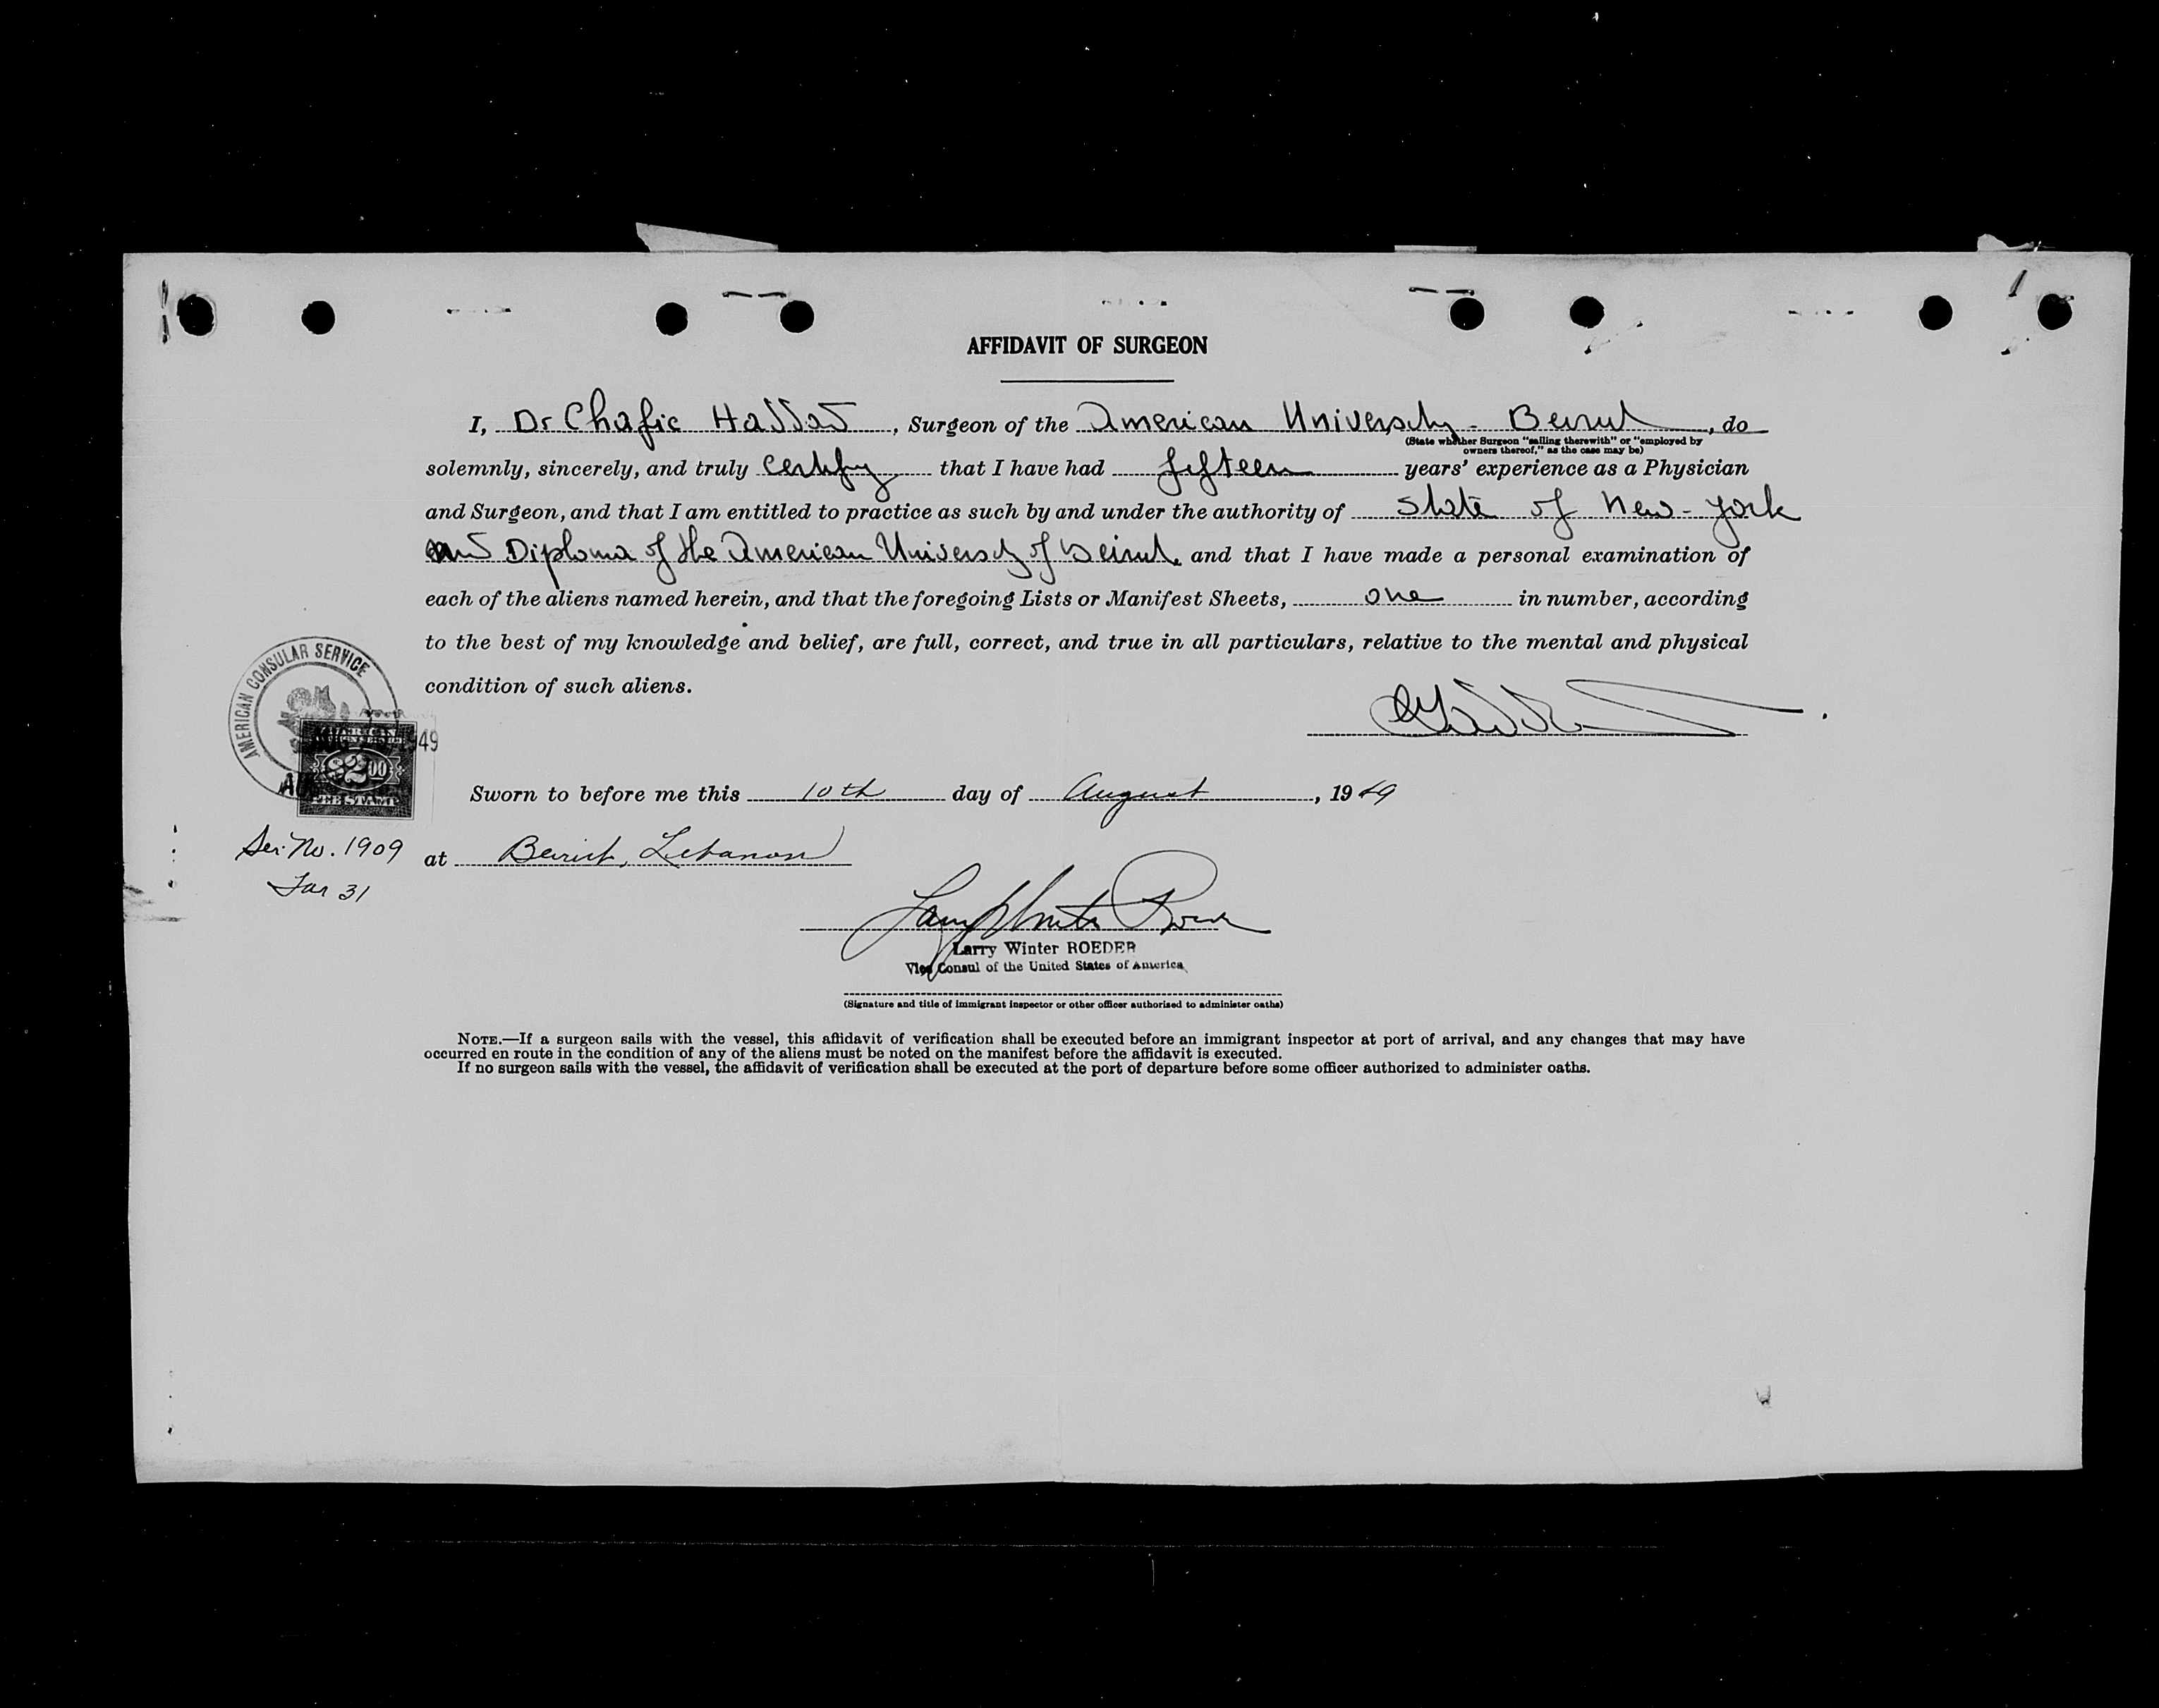 AFFIDAVIT OF SURGEON
I, Dr Chafic Haddad, Surgeon of the American University - Beirut, do
(State whether Surgeon "sailing therewith" or "employed by
owners thereof," as the case may be)
solemnly, sincerely, and truly certify that I have had fifteen years' experience as a Physician
and Surgeon, and that I am entitled to practice as such by and under the authority of State of New-York
and Diploma of the American University of Beirut, and that I have made a personal examination of
each of the aliens named herein, and that the foregoing Lists or Manifest Sheets, one in number, according
to the best of my knowledge and belief, are full, correct, and true in all particulars, relative to the mental and physical
condition of such aliens.
AMERICAN CONSULAR SERVICE
AMERICAN
1949
$2.00
FEE STAMP
Sworn to before me this 10th day of August, 1949
Ser. No. 1909
at Beirut, Lebanon
Tar 31
Larry Winter ROEDER
Vice Consul of the United States of America
(Signature and title of immigrant inspector or other officer authorized to administer oaths)
NOTE.—If a surgeon sails with the vessel, this affidavit of verification shall be executed before an immigrant inspector at port of arrival, and any changes that may have
occurred en route in the condition of any of the aliens must be noted on the manifest before the affidavit is executed.
If no surgeon sails with the vessel, the affidavit of verification shall be executed at the port of departure before some officer authorized to administer oaths.